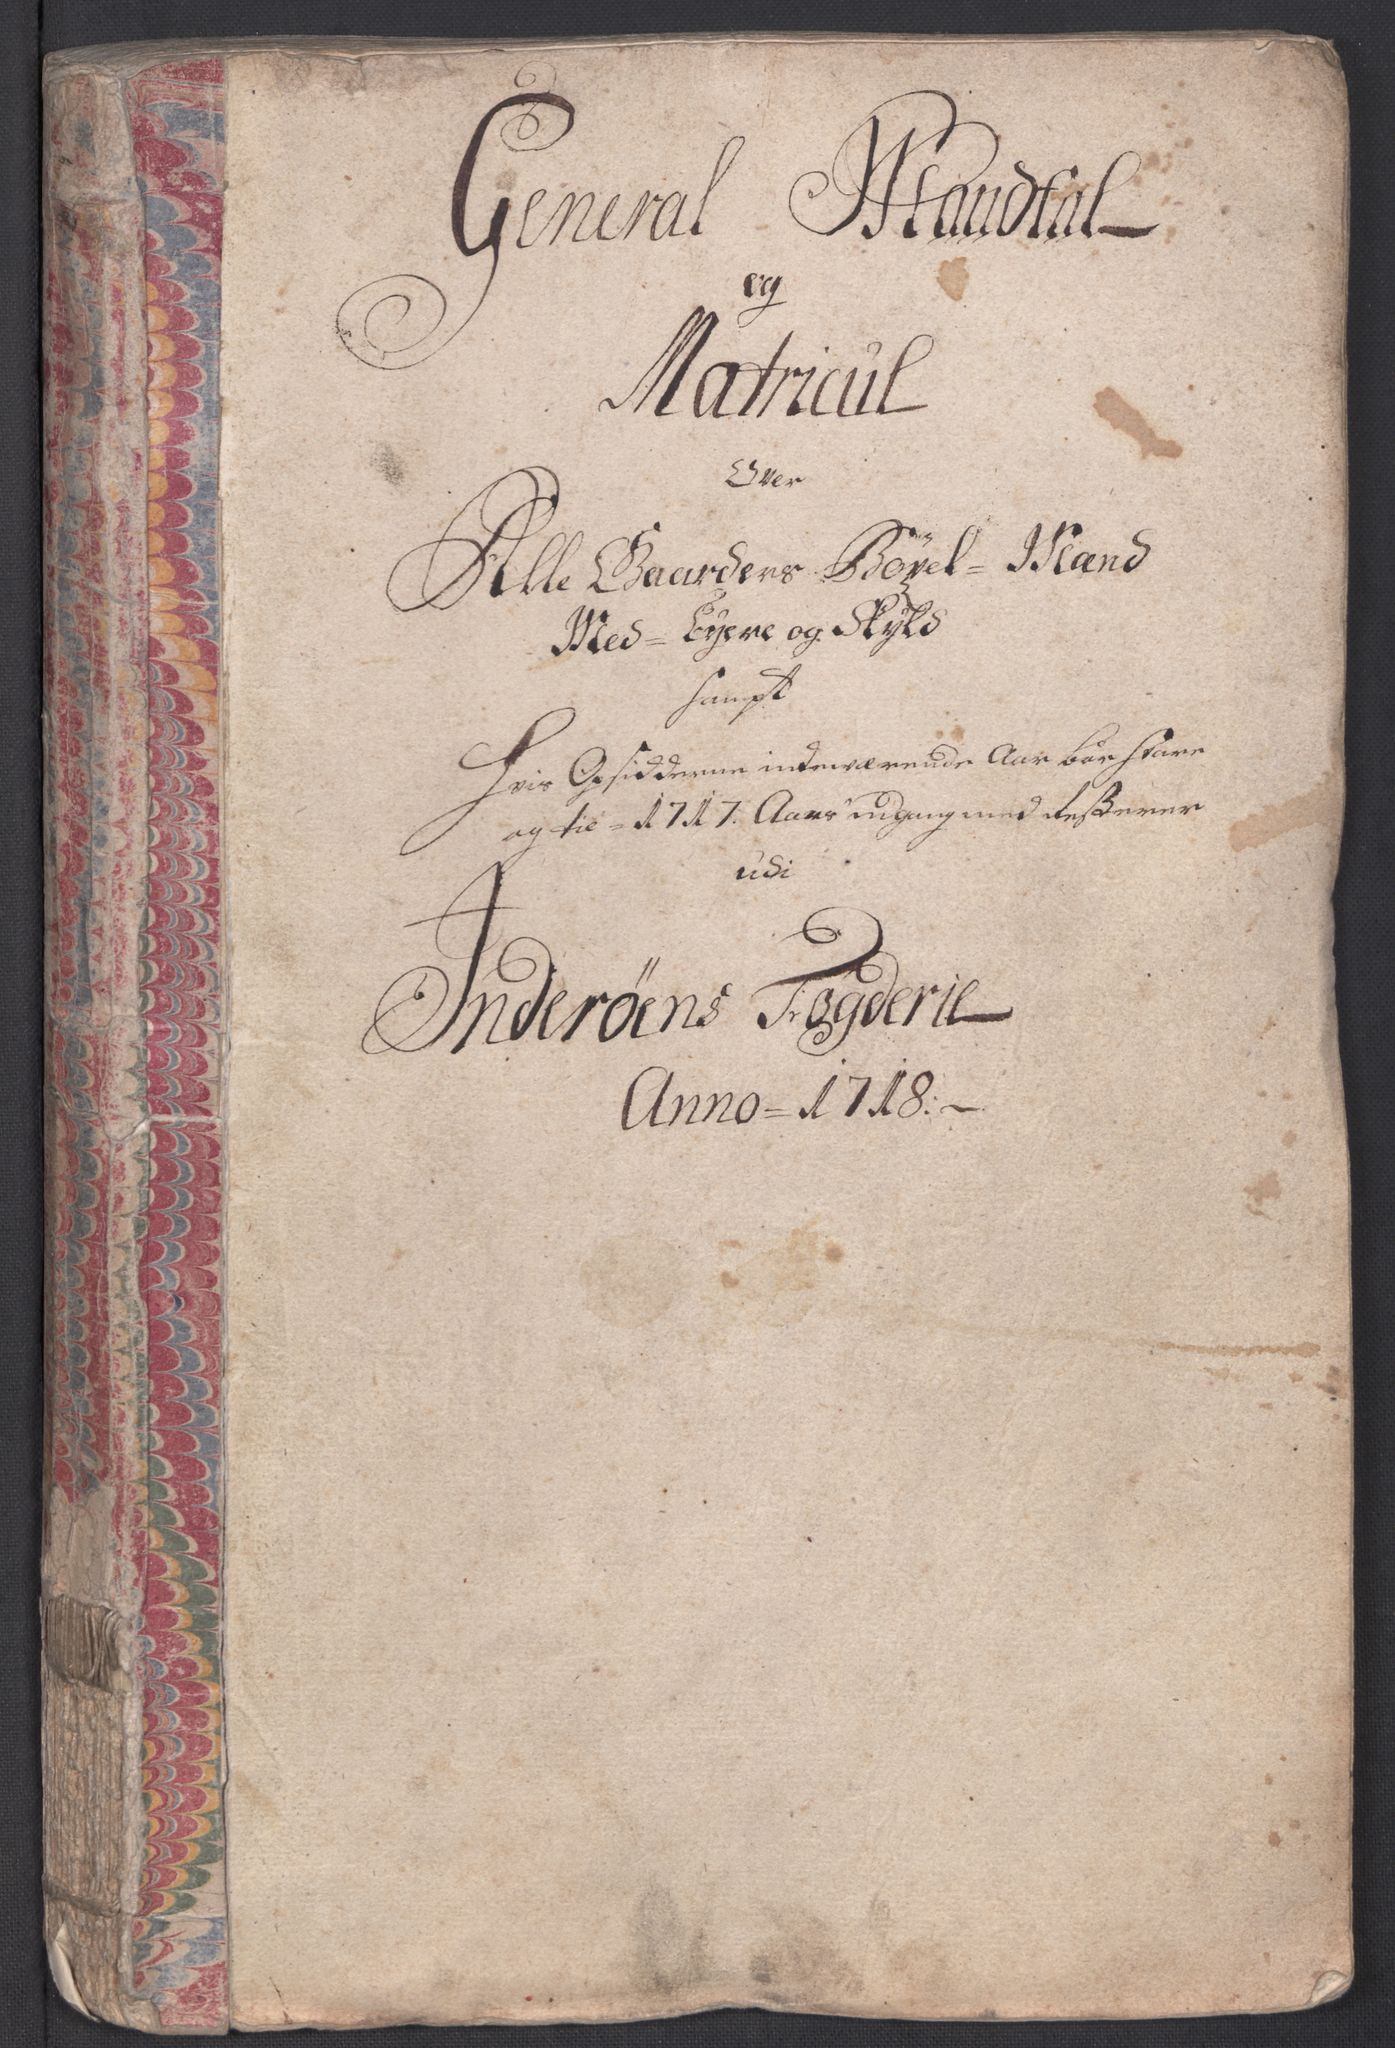 General Mandtal
og
Matricul
Over
Alle Gaarders Böxel= Mand
Med= Eyere og Skyld
sampt
Hvis Opsidderne indeværende Aar bör svare
og til 1717. Aars udgang med resterer
udi
Inderöens Fogderie
Anno= 1718: